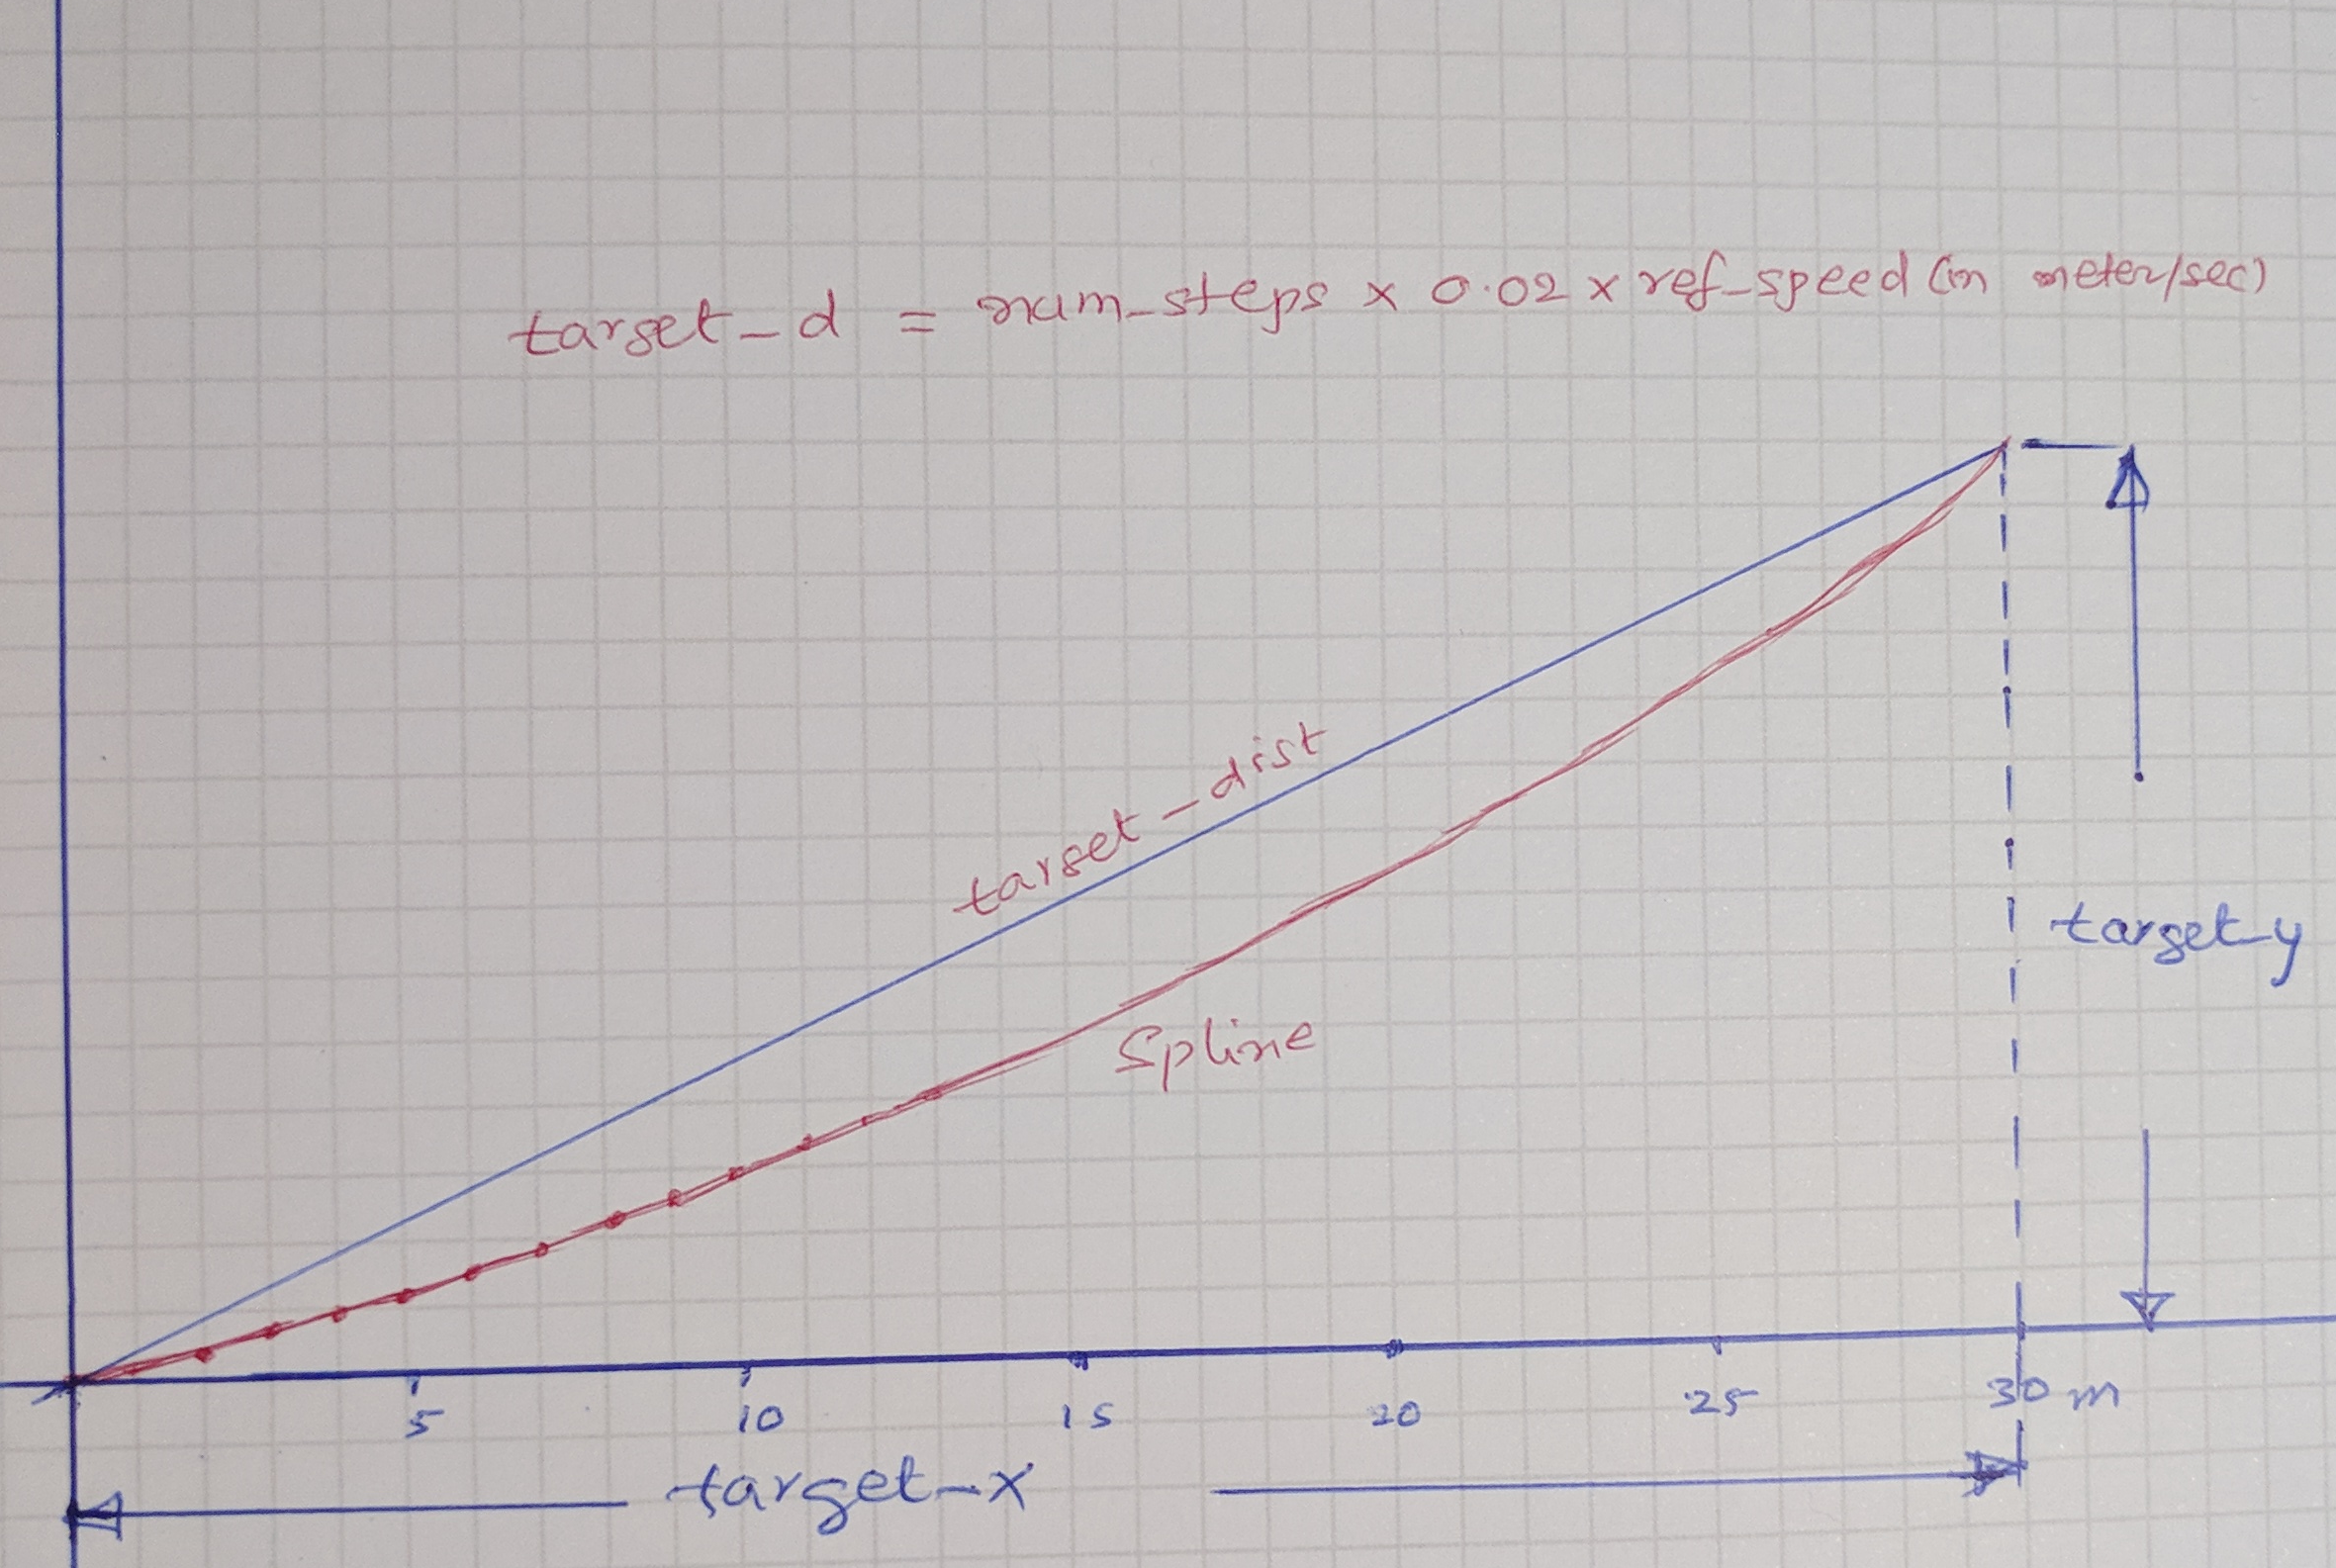 target_d = num_steps x 0.02 x ref_speed (in meter/sec)
target_dist
target_y
Spline
5 10 15 20 25 30 m
target_x